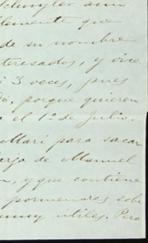 Schuyler aun
lemente que
de su nombre
teresados, y vice
i 3 veces, pues
do, porque quieren
a el 1º de Julio.
Mari para sacar
arza de Manuel
n, y que contiene
pormenores sob
muy utiles. Pero